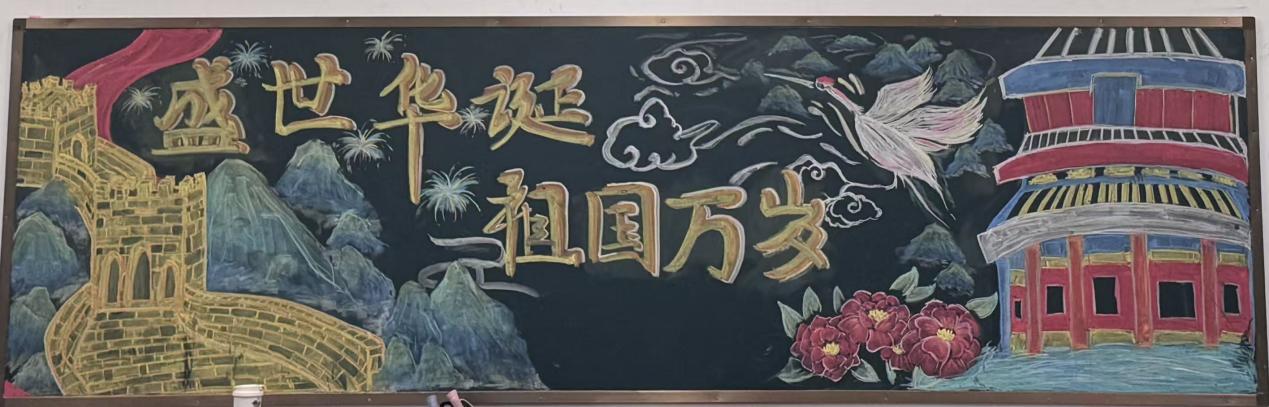 盛世华诞
祖国万岁